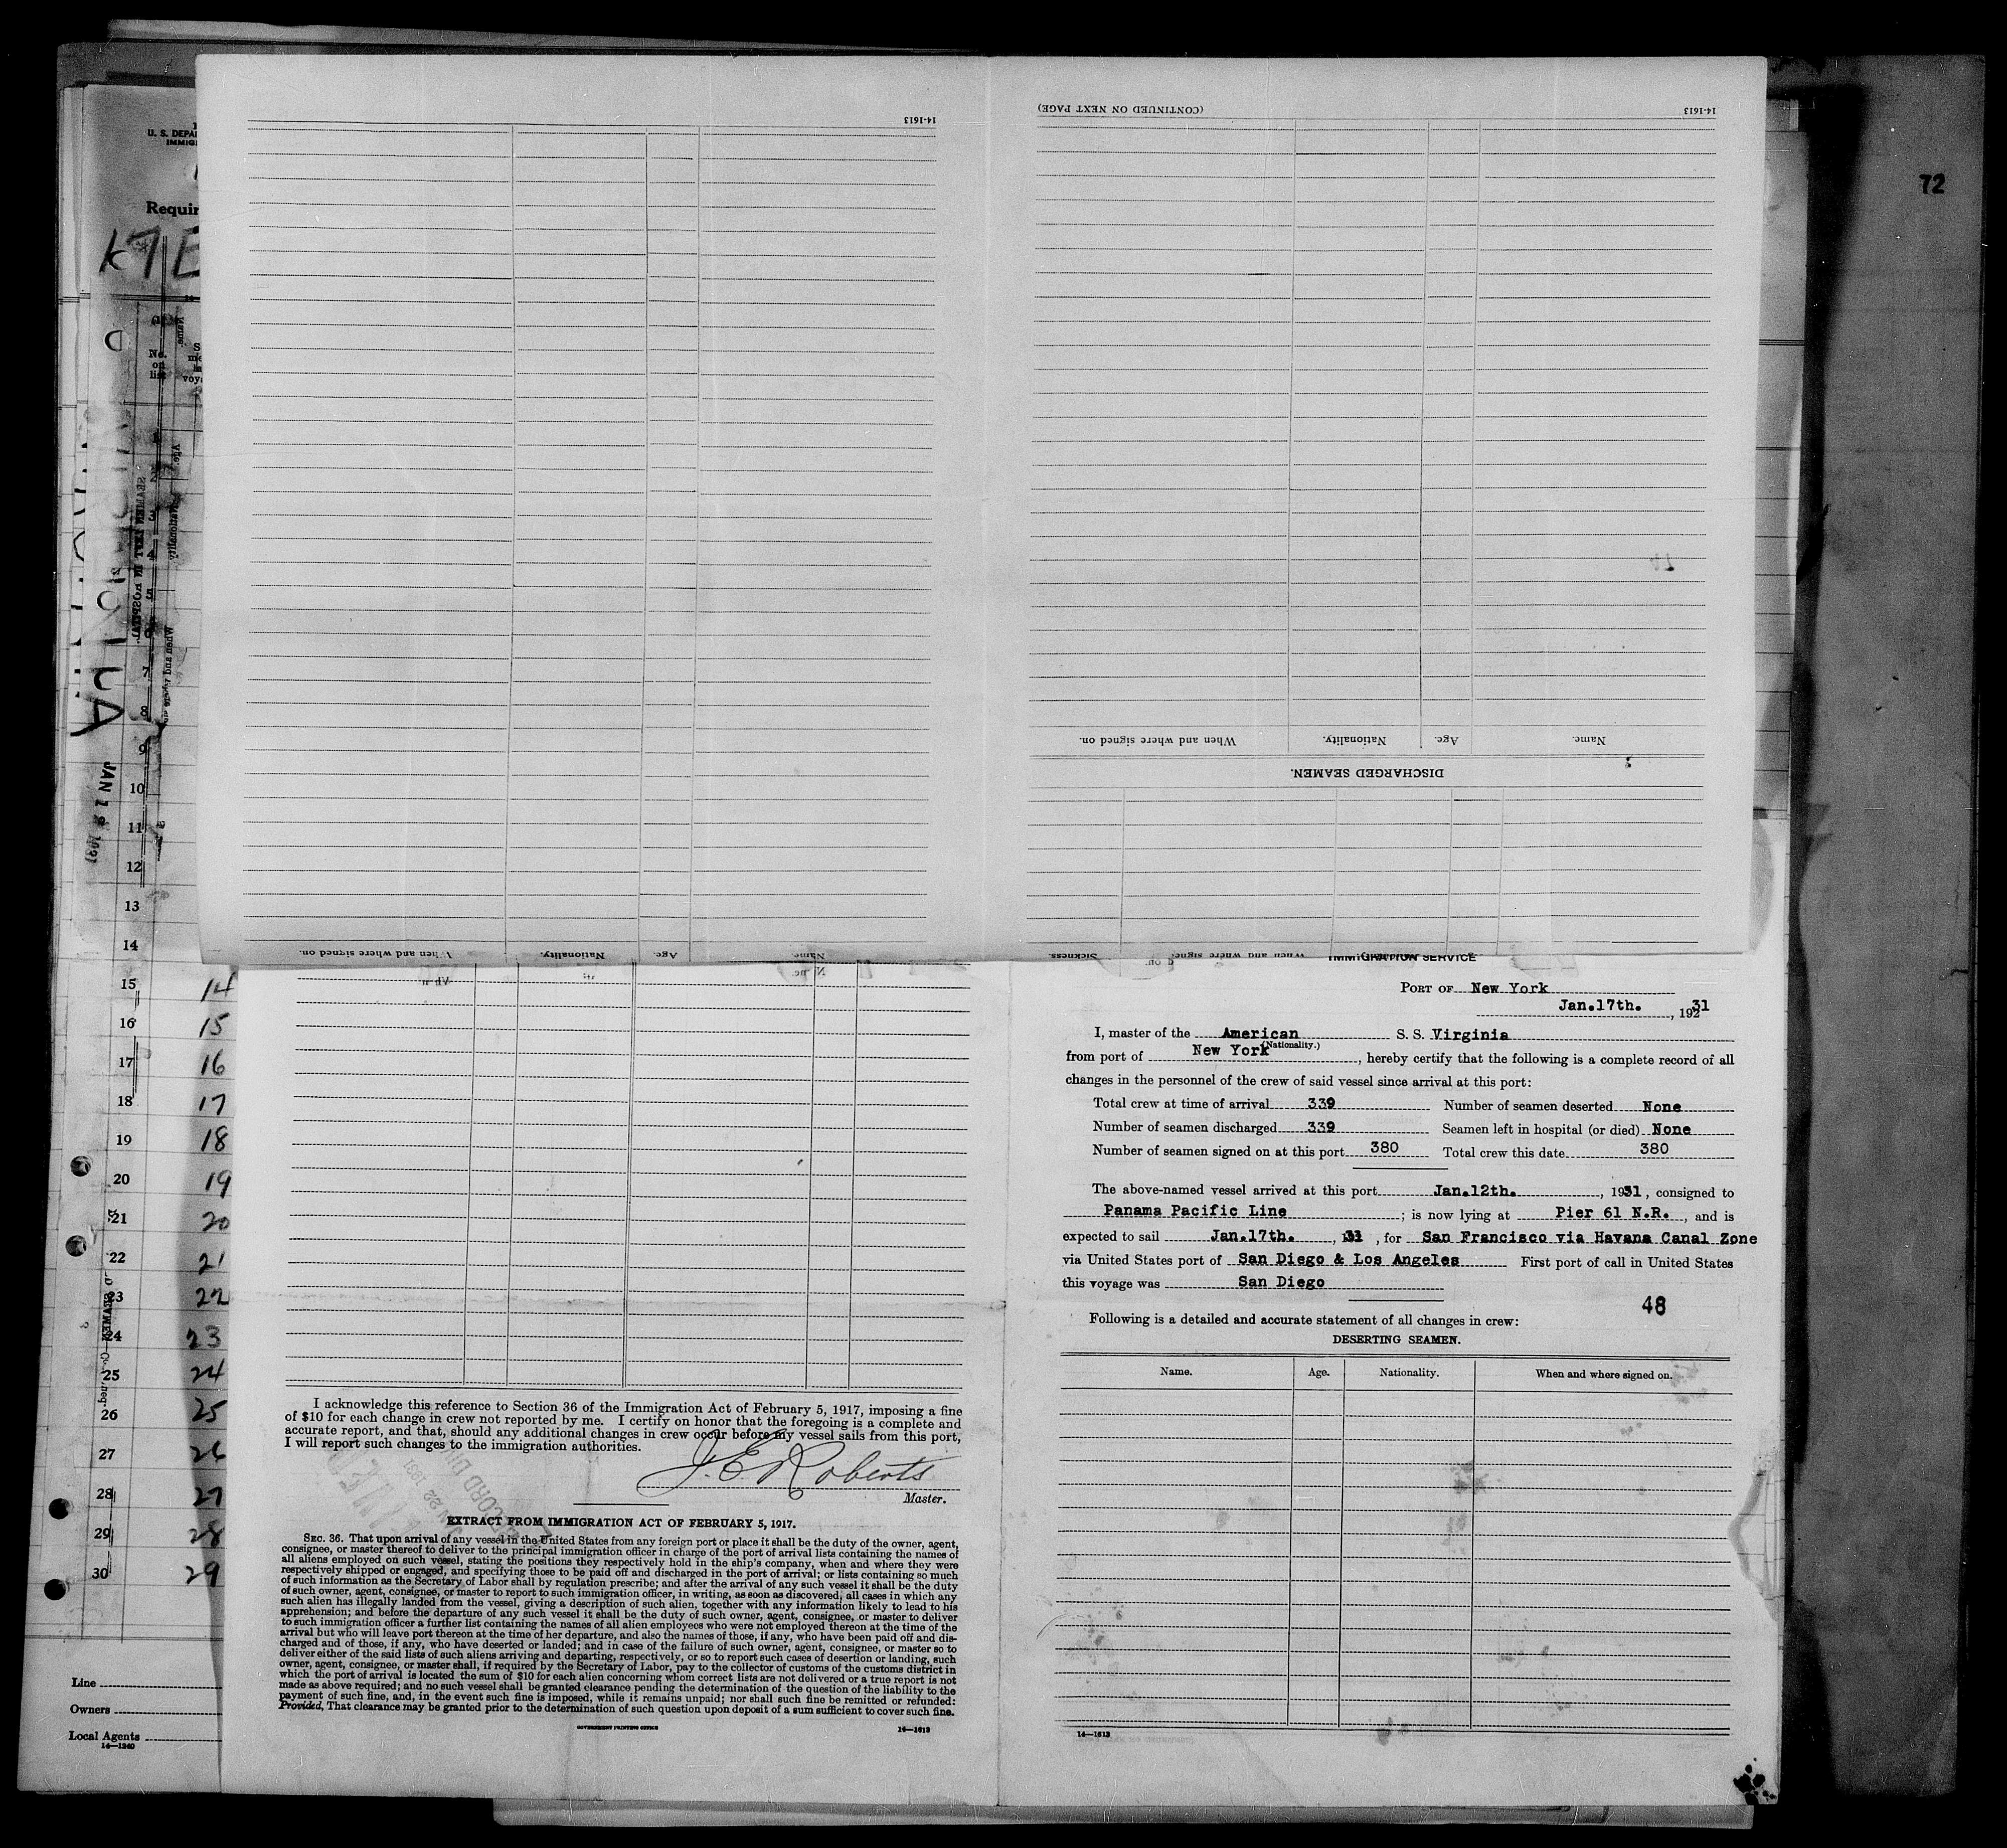 72
14-1613
(CONTINUED ON NEXT PAGE)
14-1613
U. S. DEPA
IMMIG
Requir
K7E
No.
on
list
When and where signed on.
Nationality.
Age.
Name.
DISCHARGED SEAMEN.
When and where signed on.
Nationality.
Age.
Name
Sickness.
9
10
11
12
13
14
15 14
16 15
17 16
18 17
19 18
20 19
21 20
22 21
23 22
24 23
25 24
26 25
27 26
28 27
29 28
30 29
Line
Owners
Local Agents
14—1240
I acknowledge this reference to Section 36 of the Immigration Act of February 5, 1917, imposing a fine
of $10 for each change in crew not reported by me. I certify on honor that the foregoing is a complete and
accurate report, and that, should any additional changes in crew occur before my vessel sails from this port,
I will report such changes to the immigration authorities.
J. E. Roberts
Master.
EXTRACT FROM IMMIGRATION ACT OF FEBRUARY 5, 1917.
SEC. 36. That upon arrival of any vessel in the United States from any foreign port or place it shall be the duty of the owner, agent,
consignee, or master thereof to deliver to the principal immigration officer in charge of the port of arrival lists containing the names of
all aliens employed on such vessel, stating the positions they respectively hold in the ship's company, when and where they were
respectively shipped or engaged, and specifying those to be paid off and discharged in the port of arrival; or lists containing so much
of such information as the Secretary of Labor shall by regulation prescribe; and after the arrival of any such vessel it shall be the duty
of such owner, agent, consignee, or master to report to such immigration officer, in writing, as soon as discovered, all cases in which any
such alien has illegally landed from the vessel, giving a description of such alien, together with any information likely to lead to his
apprehension; and before the departure of any such vessel it shall be the duty of such owner, agent, consignee, or master to deliver
to such immigration officer a further list containing the names of all alien employees who were not employed thereon at the time of the
arrival but who will leave port thereon at the time of her departure, and also the names of those, if any, who have been paid off and dis-
charged and of those, if any, who have deserted or landed; and in case of the failure of such owner, agent, consignee, or master so to
deliver either of the said lists of such aliens arriving and departing, respectively, or so to report such cases of desertion or landing, such
owner, agent, consignee, or master shall, if required by the Secretary of Labor, pay to the collector of customs of the customs district in
which the port of arrival is located the sum of $10 for each alien concerning whom correct lists are not delivered or a true report is not
made as above required; and no such vessel shall be granted clearance pending the determination of the question of the liability to the
payment of such fine, and, in the event such fine is imposed, while it remains unpaid; nor shall such fine be remitted or refunded:
Provided, That clearance may be granted prior to the determination of such question upon deposit of a sum sufficient to cover such fine.
GOVERNMENT PRINTING OFFICE
14—1613
IMMIGRATION SERVICE
PORT OF New York
Jan.17th. , 19231
I, master of the American S. S. Virginia
(Nationality.)
from port of New York , hereby certify that the following is a complete record of all
changes in the personnel of the crew of said vessel since arrival at this port:
Total crew at time of arrival 339 Number of seamen deserted None
Number of seamen discharged 339 Seamen left in hospital (or died) None
Number of seamen signed on at this port 380 Total crew this date 380
The above-named vessel arrived at this port Jan.12th. , 1931, consigned to
Panama Pacific Line ; is now lying at Pier 61 N.R. , and is
expected to sail Jan.17th. , 31 , for San Francisco via Havana Canal Zone
via United States port of San Diego & Los Angeles First port of call in United States
this voyage was San Diego
48
Following is a detailed and accurate statement of all changes in crew:
DESERTING SEAMEN.
Name. Age. Nationality. When and where signed on.
14—1613